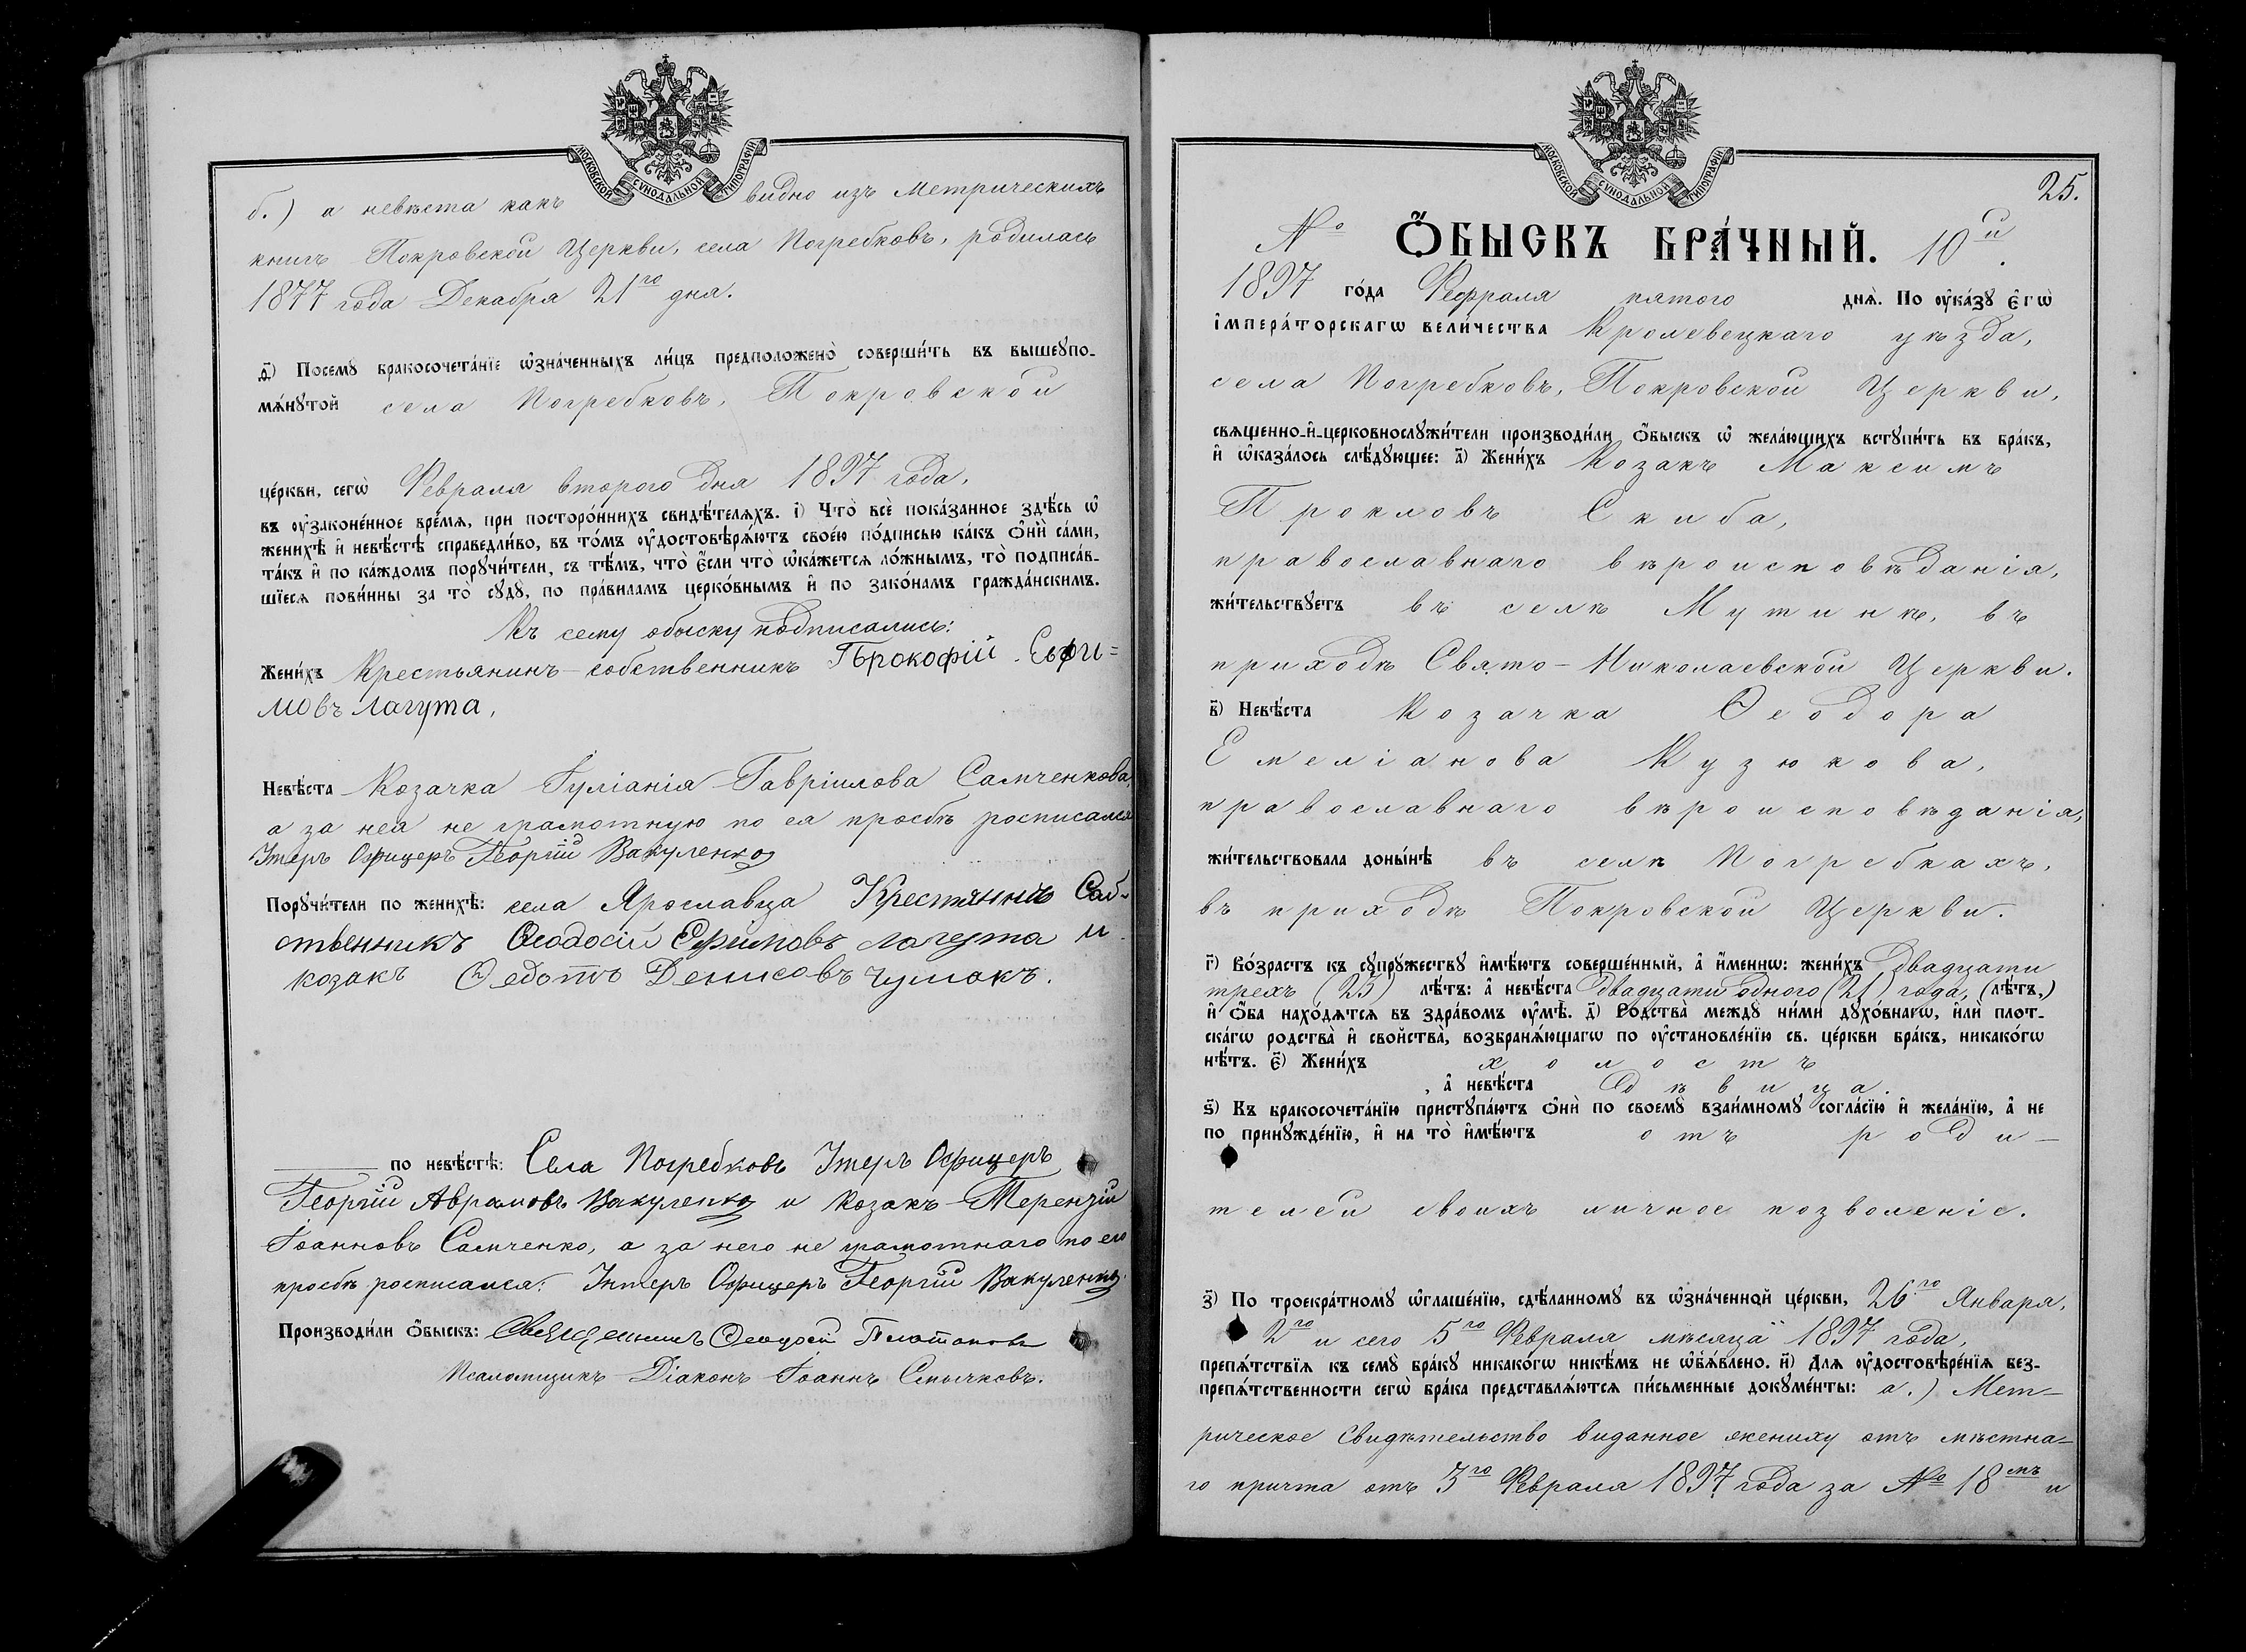 МОСКОВСКОЙ СѴНОДАЛЬНОЙ ТИПОГРАФІИ
б.) а невѣста какъ видно изъ Метрическихъ
книгъ Покровской Церкви, села Погребковъ, родилась
1877 года Декабря 21го дня.
д҃) Посемꙋ̀ бракосочета́нїе ѡ҆зна́ченныхъ ли́цъ предположено̀ соверши́ть въ вышеꙋпо-
мѧ́нꙋтой села Погребковъ, Покровской
це́ркви, сегѡ̀ Февраля второго дня 1897 года,
въ ᲂу҆законе́нное вре́мѧ, при посторо́ннихъ свидѣ́телѧхъ. і҃) Что̀ всѐ пока́занное здѣ́сь ѡ҆
женихѣ̀ и҆ невѣ́стѣ справедли́во, въ то́мъ ᲂу҆достовѣрѧ́ютъ своє́ю по́дписью ка́къ ѻ҆нѝ са́ми,
та́къ и҆ по ка́ждомъ порꙋчи́тели, съ тѣ́мъ, что̀ є҆́сли что̀ ѡ҆ка́жетсѧ ло́жнымъ, то̀ подписа́в-
шїесѧ пови́нны за то̀ сꙋдꙋ̀, по пра́виламъ церко́внымъ и҆ по зако́намъ гражда́нскимъ.
Къ сему обыску подписались:
Жени́хъ Крестьянинъ-собственникъ Прокофій Ефи=
мовъ Лагута,
Невѣ́ста Козачка Іуліанія Гавріилова Самченкова,
а за нея не грамотную по ея просьбѣ росписался
Унтеръ Офицеръ Георгій Вакуленко
Порꙋчи́тели по женихѣ̀: села Ярославца Крестянинъ Соб-
ственникъ Ѳеодосій Ефимовъ Лагута и
козакъ Ѳедотъ Денисовъ Чумакъ.
по невѣ́стѣ: Села Погребковъ Унтеръ Офицеръ
Георгій Аврамовъ Вакуленко и Козакъ Терентій
Іоанновъ Самченко, а за него не грамотнаго по его
просьбѣ росписался: Унтеръ Офицеръ Георгій Вакуленко.
Производи́ли ѻ҆́быскъ: Священникъ Ѳеодосій Платоновъ
Псаломщикъ Діаконъ Іоаннъ Смычковъ.
МОСКОВСКОЙ СѴНОДАЛЬНОЙ ТИПОГРАФІИ
25.
№ Ѻ҆́БЫСКЪ БРА́ЧНЫЙ. 10й.
1897 го́да Февраля пятого днѧ̀. По ᲂу҆ка́зꙋ є҆гѡ̀
і҆мпера́торскагѡ вели́чества Кролевецкаго уѣзда,
села Погребковъ, Покровской Церкви,
свѧщенно-и҆-церковнослꙋжи́тели производи́ли ѻ҆́быскъ ѡ҆ жела́ющихъ встꙋпи́ть въ бра́къ,
и҆ ѡ҆каза́лось слѣ́дꙋющее: а҃) Жени́хъ Козакъ Максимъ
Прокловъ Скиба,
православнаго вѣроисповѣданія,
жи́тельствꙋетъ въ селѣ Мутинѣ, въ
приходѣ Свято-Николаевской Церкви.
в҃) Невѣ́ста Козачка Ѳеодора
Емеліанова Кузюкова,
православнаго вѣроисповѣданія,
жи́тельствовала доны́нѣ въ селѣ Погребкахъ,
въ приходѣ Покровской Церкви.
г҃) Во́зрастъ къ сꙋпрꙋ́жествꙋ и҆мѣ́ютъ соверше́нный, а҆ и҆́меннѡ: жени́хъ двадцати
трехъ (23) лѣ́тъ: а҆ невѣ́ста двадцати одного (21) года, (лѣ́тъ,)
и҆ ѻ҆́ба нахо́дѧтсѧ въ здра́вомъ ᲂу҆мѣ̀. д҃) Родства̀ междꙋ ни́ми дꙋхо́внагѡ, и҆лѝ плот-
ска́гѡ родства̀ и҆ свойства̀, возбранѧ́ющагѡ по ᲂу҆становле́нїю св. це́ркви бра́къ, никако́гѡ
нѣ́тъ. є҃) Жени́хъ холостъ
, а҆ невѣ́ста дѣвица.
ѕ҃) Къ бракосочета́нїю пристꙋпа́ютъ ѻ҆нѝ по своемꙋ̀ взаи́мномꙋ согла́сїю и҆ жела́нїю, а҆ не
по принꙋжде́нїю, и҆ на то̀ и҆мѣ́ютъ отъ роди-
телей своихъ личное позволеніе.
з҃) По троекра́тномꙋ ѡ҆глаше́нїю, сдѣ́ланномꙋ въ ѡ҆зна́ченной це́ркви, 26го Января,
2го и сего 5го Февраля мѣсяца 1897 года,
препѧ́тствїѧ къ семꙋ̀ бра́кꙋ никако́гѡ никѣ́мъ не ѡ҆б̾ѧ́влено. и҃) Длѧ ᲂу҆достовѣре́нїѧ без-
препѧ́тственности сегѡ̀ бра́ка представлѧ́ютсѧ пи́сьменные докꙋме́нты: а.) Мет-
рическое Свидѣтельство виданное жениху отъ мѣстна-
го причта отъ 3го Февраля 1897 года за № 18мъ и